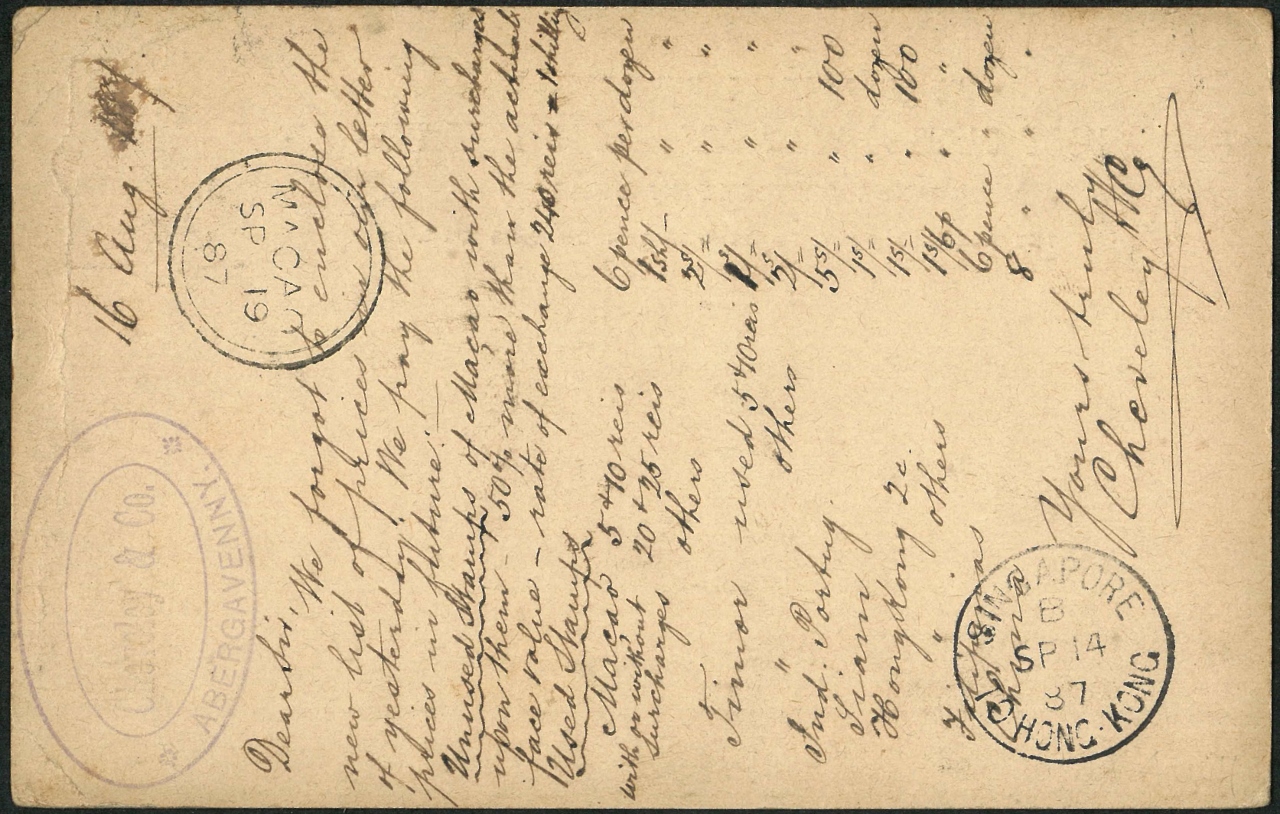 Cheveley & Co.
ABERGAVENNY.
16 Aug.
MACAO
SP 19
87
Dear Sir, We forgot to enclose the
new list of prices in our letter
of yesterday. We pay the following
prices in future:
Unused Stamps of Macao with surcharges
upon them - 50% more than the actual
face value - rate of exchange 240 reis = 1 shilling
Used Stamps
Macao 5 & 10 reis 6 pence per dozen
with or without 20 & 25 reis 1sh/- " "
surcharges others 2s/= " "
Timor used 5 & 40 reis 1s/= " "
" others 2s/= " "
Ind. Portug. 5s/ " 100
Siam 1s/= " dozen
Hongkong 2c. 1s/- " 100
" others 1s/6p " "
Filipinas 6 pence " dozen
China 8 " " "
Yours truly
Cheveley & Co.
SINGAPORE
B
SP 14
87
TO HONG-KONG